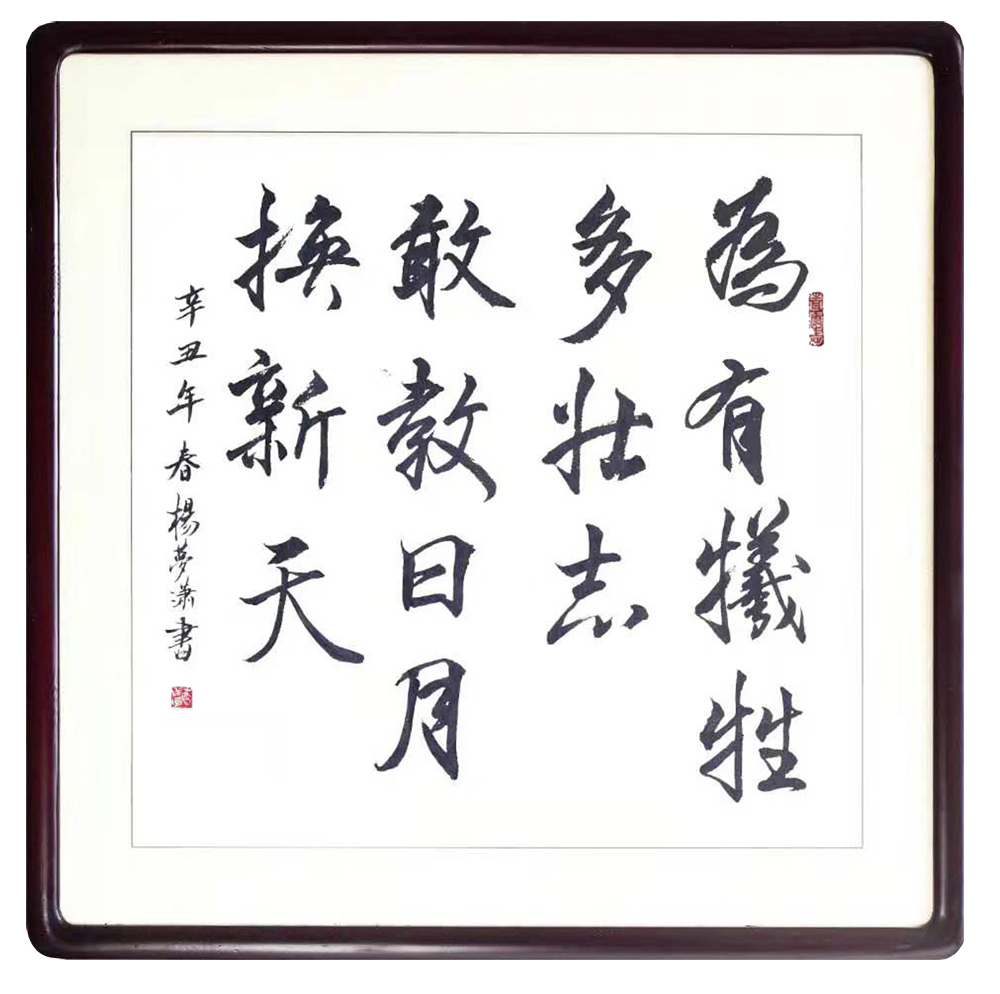 為有犧牲
多壯志
敢教日月
換新天
辛丑年春楊夢潇書